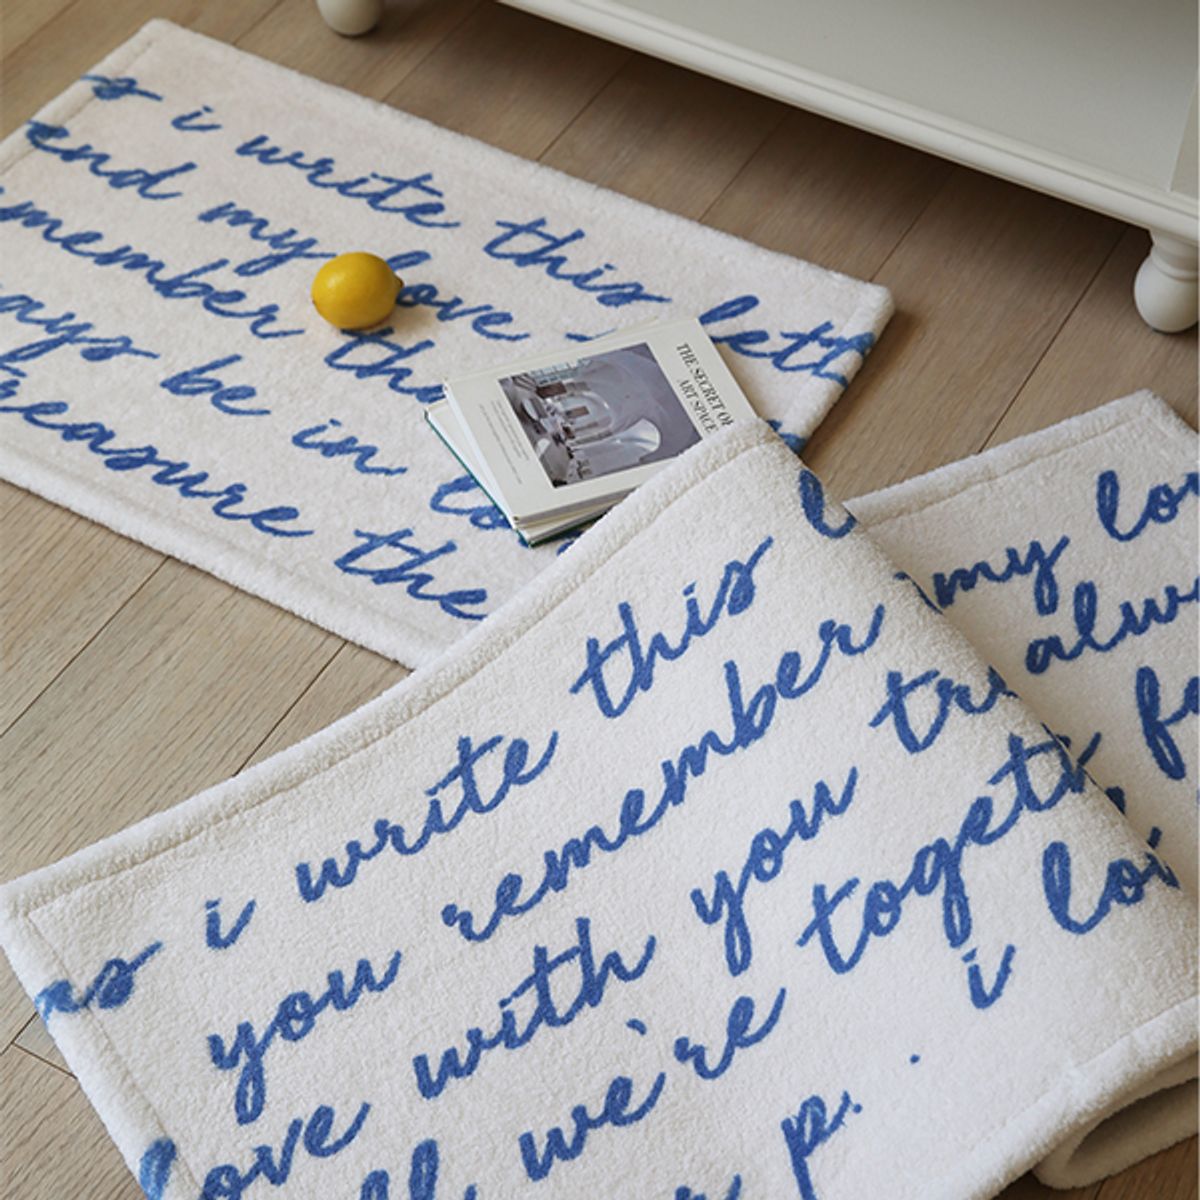 as i write this lett
end my love
member tha
ays be in lo
treasure the
THE SECRET OF
ART SPACE
as i write this l
you remember my lov
love with you tr alw
ll we're togeth fo
p. . i lov